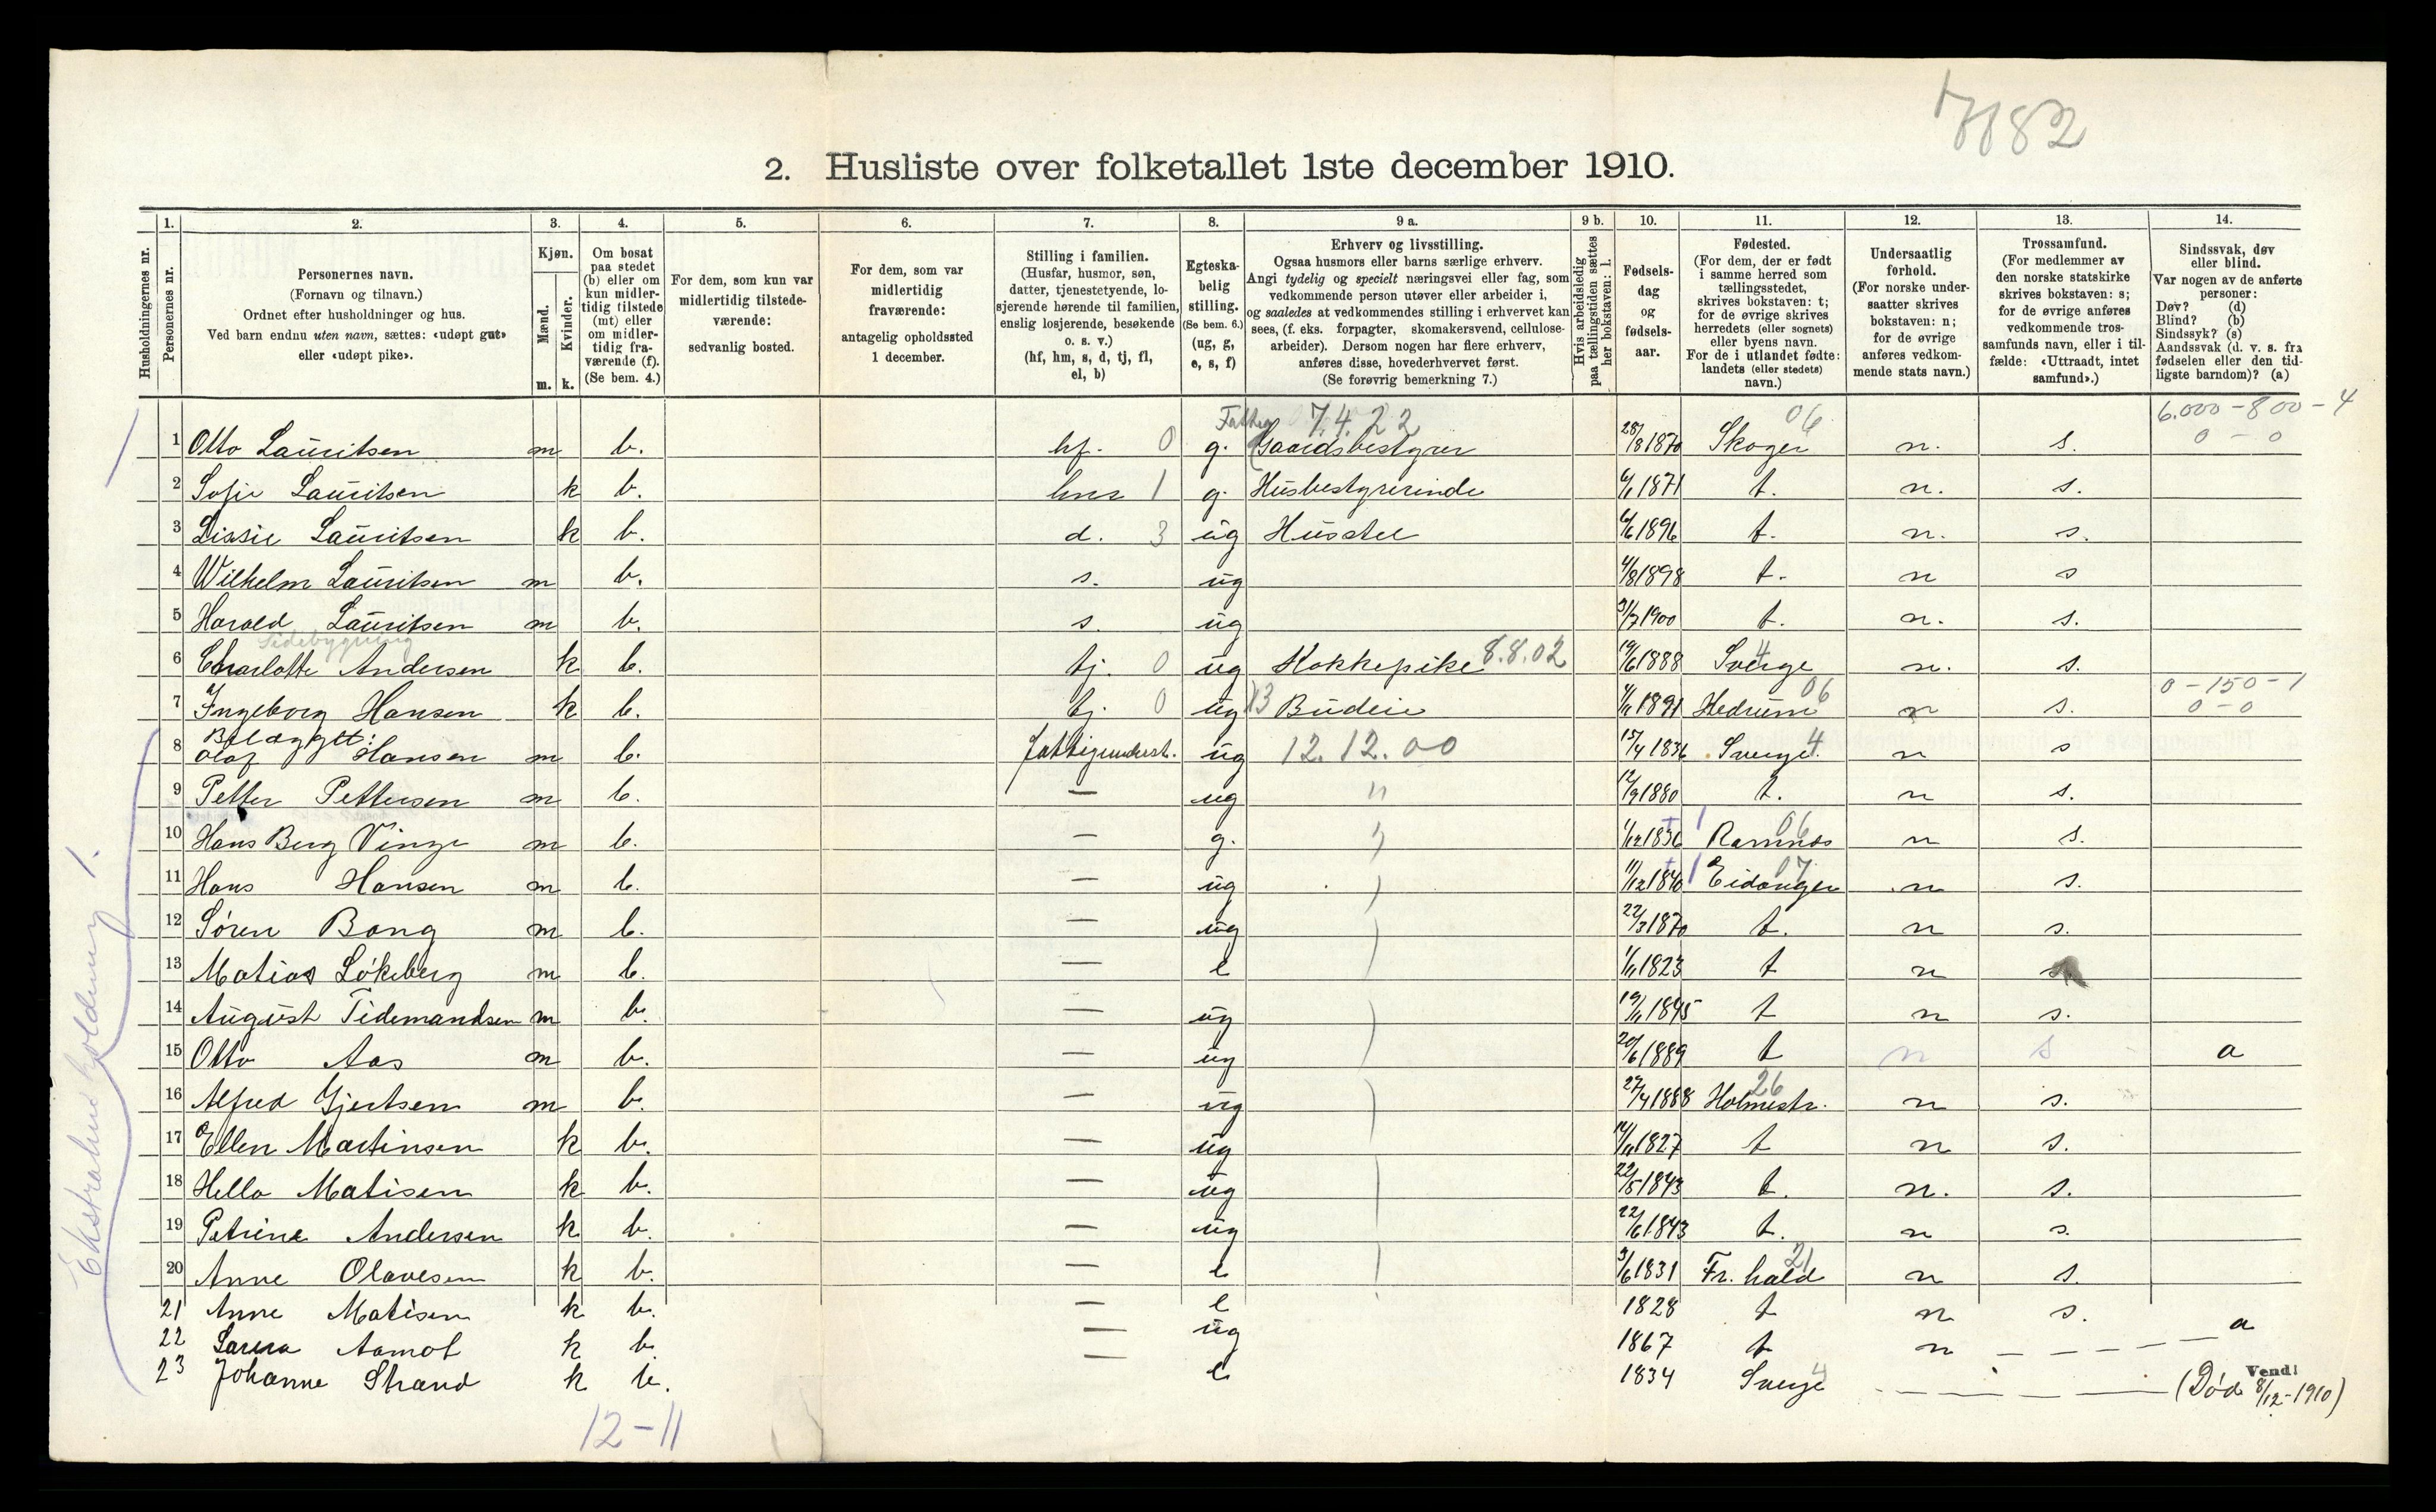 7182
2. Husliste over folketallet 1ste december 1910.
Husholdningernes nr.
1. Personernes nr.
2. Personernes navn. (Fornavn og tilnavn.) Ordnet efter husholdninger og hus. Ved barn endnu uten navn, sættes: «udøpt gut» eller «udøpt pike».
3. Kjøn. Mænd. m. Kvinder. k.
4. Om bosat paa stedet (b) eller om kun midlertidig tilstede (mt) eller om midlertidig fraværende (f). (Se bem. 4.)
5. For dem, som kun var midlertidig tilstedeværende: sedvanlig bosted.
6. For dem, som var midlertidig fraværende: antagelig opholdssted 1 december.
7. Stilling i familien. (Husfar, husmor, søn, datter, tjenestetyende, losjerende hørende til familien, enslig losjerende, besøkende o. s. v.) (hf, hm, s, d, tj, fl, el, b)
8. Egteskabelig stilling. (Se bem. 6.) (ug, g, e, s, f)
9 a. Erhverv og livsstilling. Ogsaa husmors eller barns særlige erhverv. Angi tydelig og specielt næringsvei eller fag, som vedkommende person utøver eller arbeider i, og saaledes at vedkommendes stilling i erhvervet kan sees, (f. eks. forpagter, skomakersvend, cellulosearbeider). Dersom nogen har flere erhverv, anføres disse, hovederhvervet først. (Se forøvrig bemerkning 7.)
9 b. Hvis arbeidsledig paa tællingstiden sættes her bokstaven: l.
10. Fødselsdag og fødselsaar.
11. Fødested. (For dem, der er født i samme herred som tællingsstedet, skrives bokstaven: t; for de øvrige skrives herredets (eller sognets) eller byens navn. For de i utlandet fødte: landets (eller stedets) navn.)
12. Undersaatlig forhold. (For norske undersaatter skrives bokstaven: n; for de øvrige anføres vedkommende stats navn.)
13. Trossamfund. (For medlemmer av den norske statskirke skrives bokstaven: s; for de øvrige anføres vedkommende trossamfunds navn, eller i tilfælde: «Uttraadt, intet samfund».)
14. Sindssvak, døv eller blind. Var nogen av de anførte personer: Døv? (d) Blind? (b) Sindssyk? (s) Aandssvak (d. v. s. fra fødselen eller den tidligste barndom)? (a)
7.4.22 06 6.000-800-4
1 Otto Lauritsen m b. hf. 0 g. Gaardsbestyrer 28/8 1870 Skoger n. s. 0-0
2 Sofie Lauritsen k b. hm 1 g. Husbestyrerinde 6/1 1871 t. n. s.
3 Lissie Lauritsen k b. d. 3 ug Husstel 6/6 1896 t. n. s.
4 Wilhelm Lauritsen m b. s. ug 4/8 1898 t. n s
5 Harald Lauritsen m b. s. ug 31/7 1900 t. n. s.
Sidebygning
6 Charlotte Andersen k b. tj. 0 ug Kokkepike 8.8.02 19/6 1888 Sverge 4 n. s.
06 0-150-1
7 Ingeborg Hansen k b. tj. 0 ug 13 Budeie 4/11 1891 Hedrum n s. 0-0
Belægget:
8 Olaf Hansen m b. fattigunderst. ug 12.12.00 15/4 1836 Sverge. 4 n s
9 Petter Pettersen m b. — ug " 12/9 1880 t. n s.
10 Hans Berg Vinge m b. — g. 1/12 1836 Ramnes 06 n s.
11 Hans Hansen m b. — ug 11/12 1840 Eidanger 07 n s.
12 Søren Bang m b. — ug 22/3 1870 t. n s.
13 Matias Løkeberg m b. — e 1/11 1823 t n s.
14 August Tidemandsen m b. — ug 19/11 1845 t n s.
15 Otto Aas m b. — ug 20/6 1889 t n s a
16 Alfred Gjertsen m b. — ug 27/4 1888 Holmestr. 26 n s.
17 Ellen Martinsen k b. — ug 1827 t n s.
18 Hella Matisen k b. — ug 22/5 1843 t. n. s.
19 Petrine Andersen k b. — ug 22/6 1843 t. n s.
20 Anne Olavesen k b. — e 3/6 1831 Fr. hald 21 n s.
21 Anne Matisen k b. — e 1828 t n s.
22 Aamot k b. — ug 1867 t n — — — — a
23 Johanne Strand k b. — e 1834 Sverge 4 — — — — (Død 8/12-1910)
Vend!
12-11
Ekstrahusholdning 1.